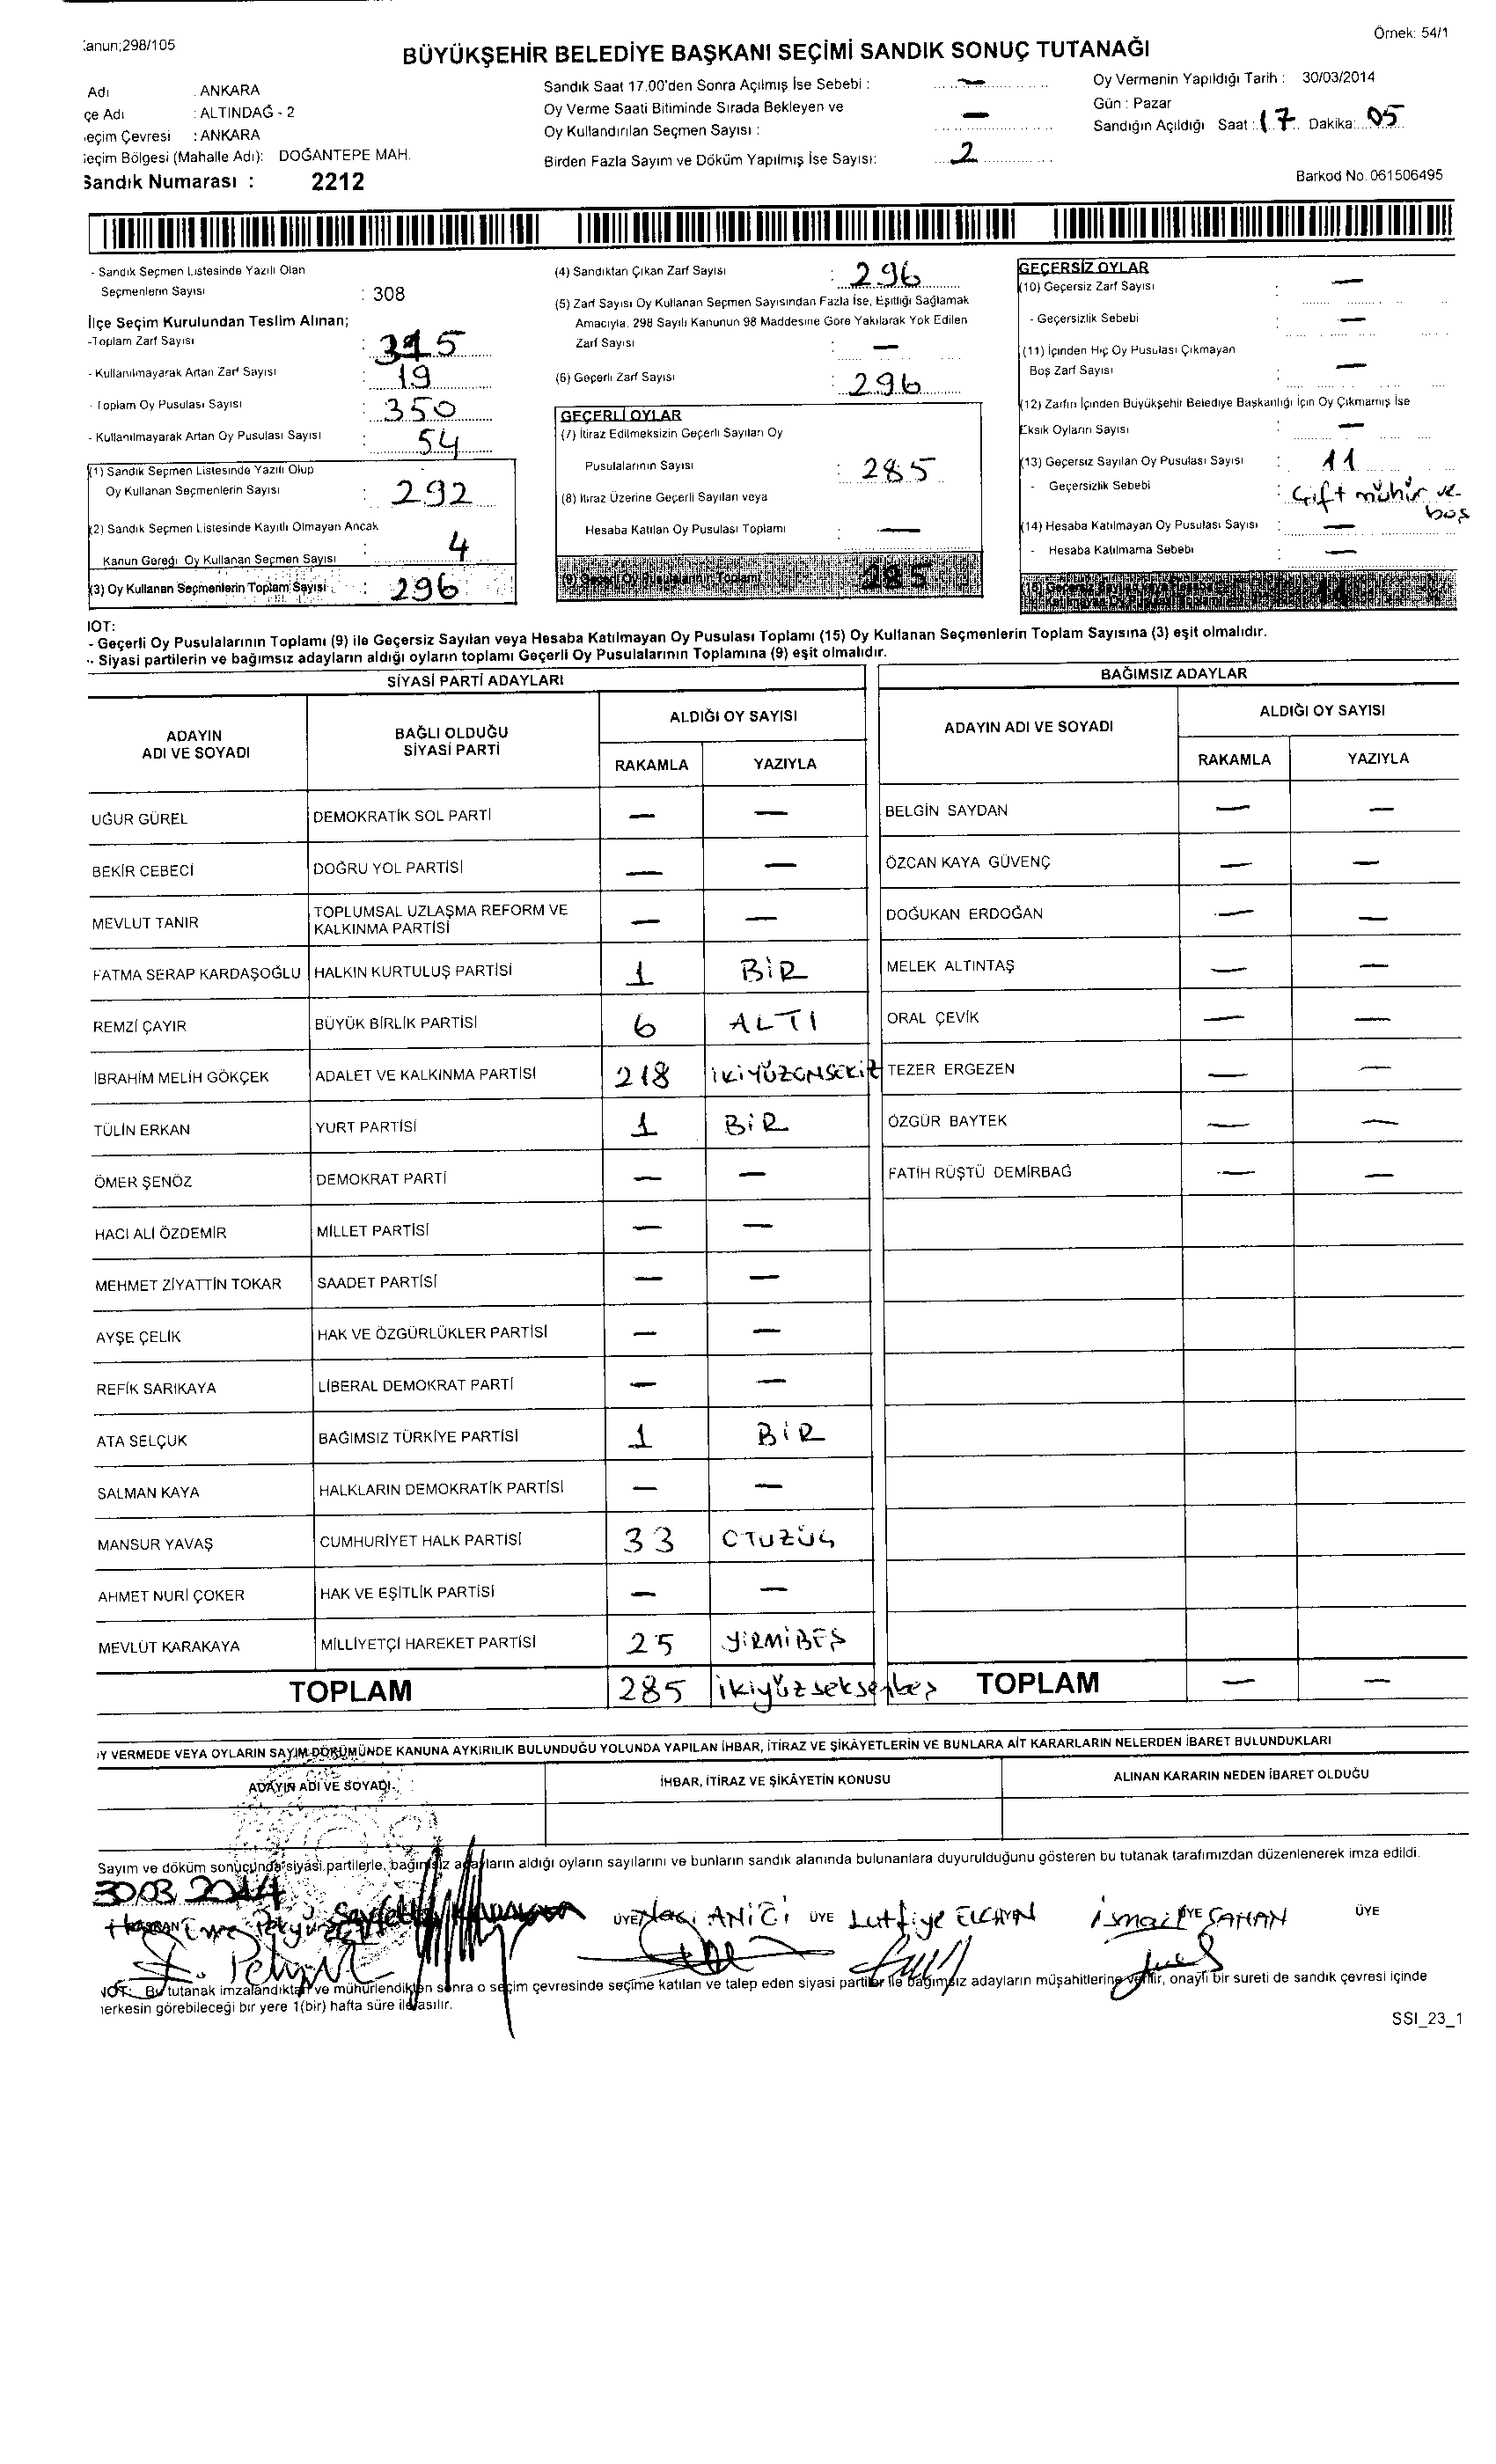 anun;298/105
Örnek: 54/1
BÜYÜKŞEHİR BELEDİYE BAŞKANI SEÇİMİ SANDIK SONUÇ TUTANAĞI
Adı : ANKARA
çe Adı : ALTINDAĞ - 2
eçim Çevresi : ANKARA
eçim Bölgesi (Mahalle Adı): DOĞANTEPE MAH.
Sandık Numarası : 2212
Sandık Saat 17.00'den Sonra Açılmış İse Sebebi : —
Oy Verme Saati Bitiminde Sırada Bekleyen ve
Oy Kullandırılan Seçmen Sayısı : —
Birden Fazla Sayım ve Döküm Yapılmış İse Sayısı: 2
Oy Vermenin Yapıldığı Tarih : 30/03/2014
Gün : Pazar
Sandığın Açıldığı Saat : 17 Dakika: 05
Barkod No.061506495
- Sandık Seçmen Listesinde Yazılı Olan
Seçmenlerin Sayısı : 308
İlçe Seçim Kurulundan Teslim Alınan;
-Toplam Zarf Sayısı : 315
- Kullanılmayarak Artan Zarf Sayısı : 19
- Toplam Oy Pusulası Sayısı : 350
- Kullanılmayarak Artan Oy Pusulası Sayısı : 54
(1) Sandık Seçmen Listesinde Yazılı Olup
Oy Kullanan Seçmenlerin Sayısı : 292
(2) Sandık Seçmen Listesinde Kayıtlı Olmayan Ancak
Kanun Gereği Oy Kullanan Seçmen Sayısı : 4
(3) Oy Kullanan Seçmenlerin Toplam Sayısı : 296
(4) Sandıktan Çıkan Zarf Sayısı : 296
(5) Zarf Sayısı Oy Kullanan Seçmen Sayısından Fazla İse, Eşitliği Sağlamak
Amacıyla, 298 Sayılı Kanunun 98 Maddesine Göre Yakılarak Yok Edilen
Zarf Sayısı : —
(6) Geçerli Zarf Sayısı : 296
GEÇERLİ OYLAR
(7) İtiraz Edilmeksizin Geçerli Sayılan Oy
Pusulalarının Sayısı : 285
(8) İtiraz Üzerine Geçerli Sayılan veya
Hesaba Katılan Oy Pusulası Toplamı : —
(9) Geçerli Oy Pusulalarının Toplamı : 285
GEÇERSİZ OYLAR
(10) Geçersiz Zarf Sayısı : —
- Geçersizlik Sebebi : —
(11) İçinden Hiç Oy Pusulası Çıkmayan
Boş Zarf Sayısı : —
(12) Zarfın İçinden Büyükşehir Belediye Başkanlığı İçin Oy Çıkmamış İse
Eksik Oyların Sayısı : —
(13) Geçersiz Sayılan Oy Pusulası Sayısı : 11
- Geçersizlik Sebebi : Çift mühür ve
boş
(14) Hesaba Katılmayan Oy Pusulası Sayısı : —
- Hesaba Katılmama Sebebi : —
11
NOT:
- Geçerli Oy Pusulalarının Toplamı (9) ile Geçersiz Sayılan veya Hesaba Katılmayan Oy Pusulası Toplamı (15) Oy Kullanan Seçmenlerin Toplam Sayısına (3) eşit olmalıdır.
- Siyasi partilerin ve bağımsız adayların aldığı oyların toplamı Geçerli Oy Pusulalarının Toplamına (9) eşit olmalıdır.
SİYASİ PARTİ ADAYLARI
BAĞIMSIZ ADAYLAR
ADAYIN
ADI VE SOYADI
BAĞLI OLDUĞU
SİYASİ PARTİ
ALDIĞI OY SAYISI
RAKAMLA YAZIYLA
ADAYIN ADI VE SOYADI
ALDIĞI OY SAYISI
RAKAMLA YAZIYLA
UĞUR GÜREL DEMOKRATİK SOL PARTİ — — BELGİN SAYDAN — —
BEKİR CEBECİ DOĞRU YOL PARTİSİ — — ÖZCAN KAYA GÜVENÇ — —
MEVLUT TANIR TOPLUMSAL UZLAŞMA REFORM VE
KALKINMA PARTİSİ — — DOĞUKAN ERDOĞAN — —
FATMA SERAP KARDAŞOĞLU HALKIN KURTULUŞ PARTİSİ 1 BİR MELEK ALTINTAŞ — —
REMZİ ÇAYIR BÜYÜK BİRLİK PARTİSİ 6 ALTI ORAL ÇEVİK — —
İBRAHİM MELİH GÖKÇEK ADALET VE KALKINMA PARTİSİ 218 İKİYÜZONSEKİZ TEZER ERGEZEN — —
TÜLİN ERKAN YURT PARTİSİ 1 BİR ÖZGÜR BAYTEK — —
ÖMER ŞENÖZ DEMOKRAT PARTİ — — FATİH RÜŞTÜ DEMİRBAĞ — —
HACI ALİ ÖZDEMİR MİLLET PARTİSİ — —
MEHMET ZİYATTİN TOKAR SAADET PARTİSİ — —
AYŞE ÇELİK HAK VE ÖZGÜRLÜKLER PARTİSİ — —
REFİK SARIKAYA LİBERAL DEMOKRAT PARTİ — —
ATA SELÇUK BAĞIMSIZ TÜRKİYE PARTİSİ 1 BİR
SALMAN KAYA HALKLARIN DEMOKRATİK PARTİSİ — —
MANSUR YAVAŞ CUMHURİYET HALK PARTİSİ 33 OTUZÜÇ
AHMET NURİ ÇOKER HAK VE EŞİTLİK PARTİSİ — —
MEVLÜT KARAKAYA MİLLİYETÇİ HAREKET PARTİSİ 25 YİRMİBEŞ
TOPLAM 285 ikiyüzseksenbeş TOPLAM — —
Y VERMEDE VEYA OYLARIN SAYIM DÖKÜMÜNDE KANUNA AYKIRILIK BULUNDUĞU YOLUNDA YAPILAN İHBAR, İTİRAZ VE ŞİKÂYETLERİN VE BUNLARA AİT KARARLARIN NELERDEN İBARET BULUNDUKLARI
ADAYIN ADI VE SOYADI İHBAR, İTİRAZ VE ŞİKÂYETİN KONUSU ALINAN KARARIN NEDEN İBARET OLDUĞU
Sayım ve döküm sonucunda siyasi partilerle, bağımsız adayların aldığı oyların sayılarını ve bunların sandık alanında bulunanlara duyurulduğunu gösteren bu tutanak tarafımızdan düzenlenerek imza edildi.
30.03.2014
BAŞKAN ÜYE Naci ANİCİ ÜYE Lutfiye ÜYE İsmail ÜYE
NOT: Bu tutanak imzalandıktan ve mühürlendikten sonra o seçim çevresinde seçime katılan ve talep eden siyasi partiler ile bağımsız adayların müşahitlerine verilir, onaylı bir sureti de sandık çevresi içinde
herkesin görebileceği bir yere 1(bir) hafta süre ile asılır.
SSI_23_1